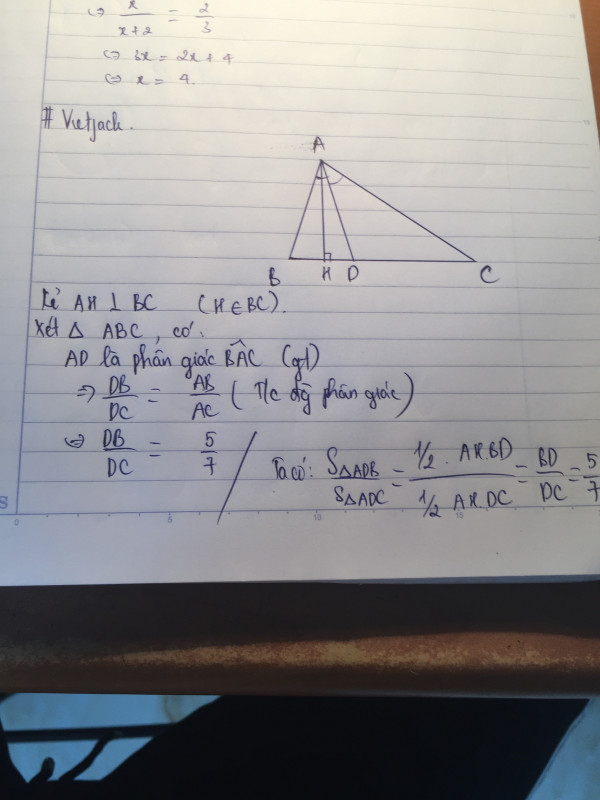 <=> x/(x+2) = 2/3
<=> 3x = 2x + 4
<=> x = 4.
# Vietjack.
A
B H D C
Kẻ AH ⊥ BC (H ∈ BC).
Xét △ ABC, có:
AD là phân giác BÂC (gt)
=> DB/DC = AB/AC (T/c đg phân giác)
=> DB/DC = 5/7
Ta có: S△ADB/S△ADC = (1/2 . AH.BD)/(1/2 AH.DC) = BD/DC = 5/7
S
0 5 10 15